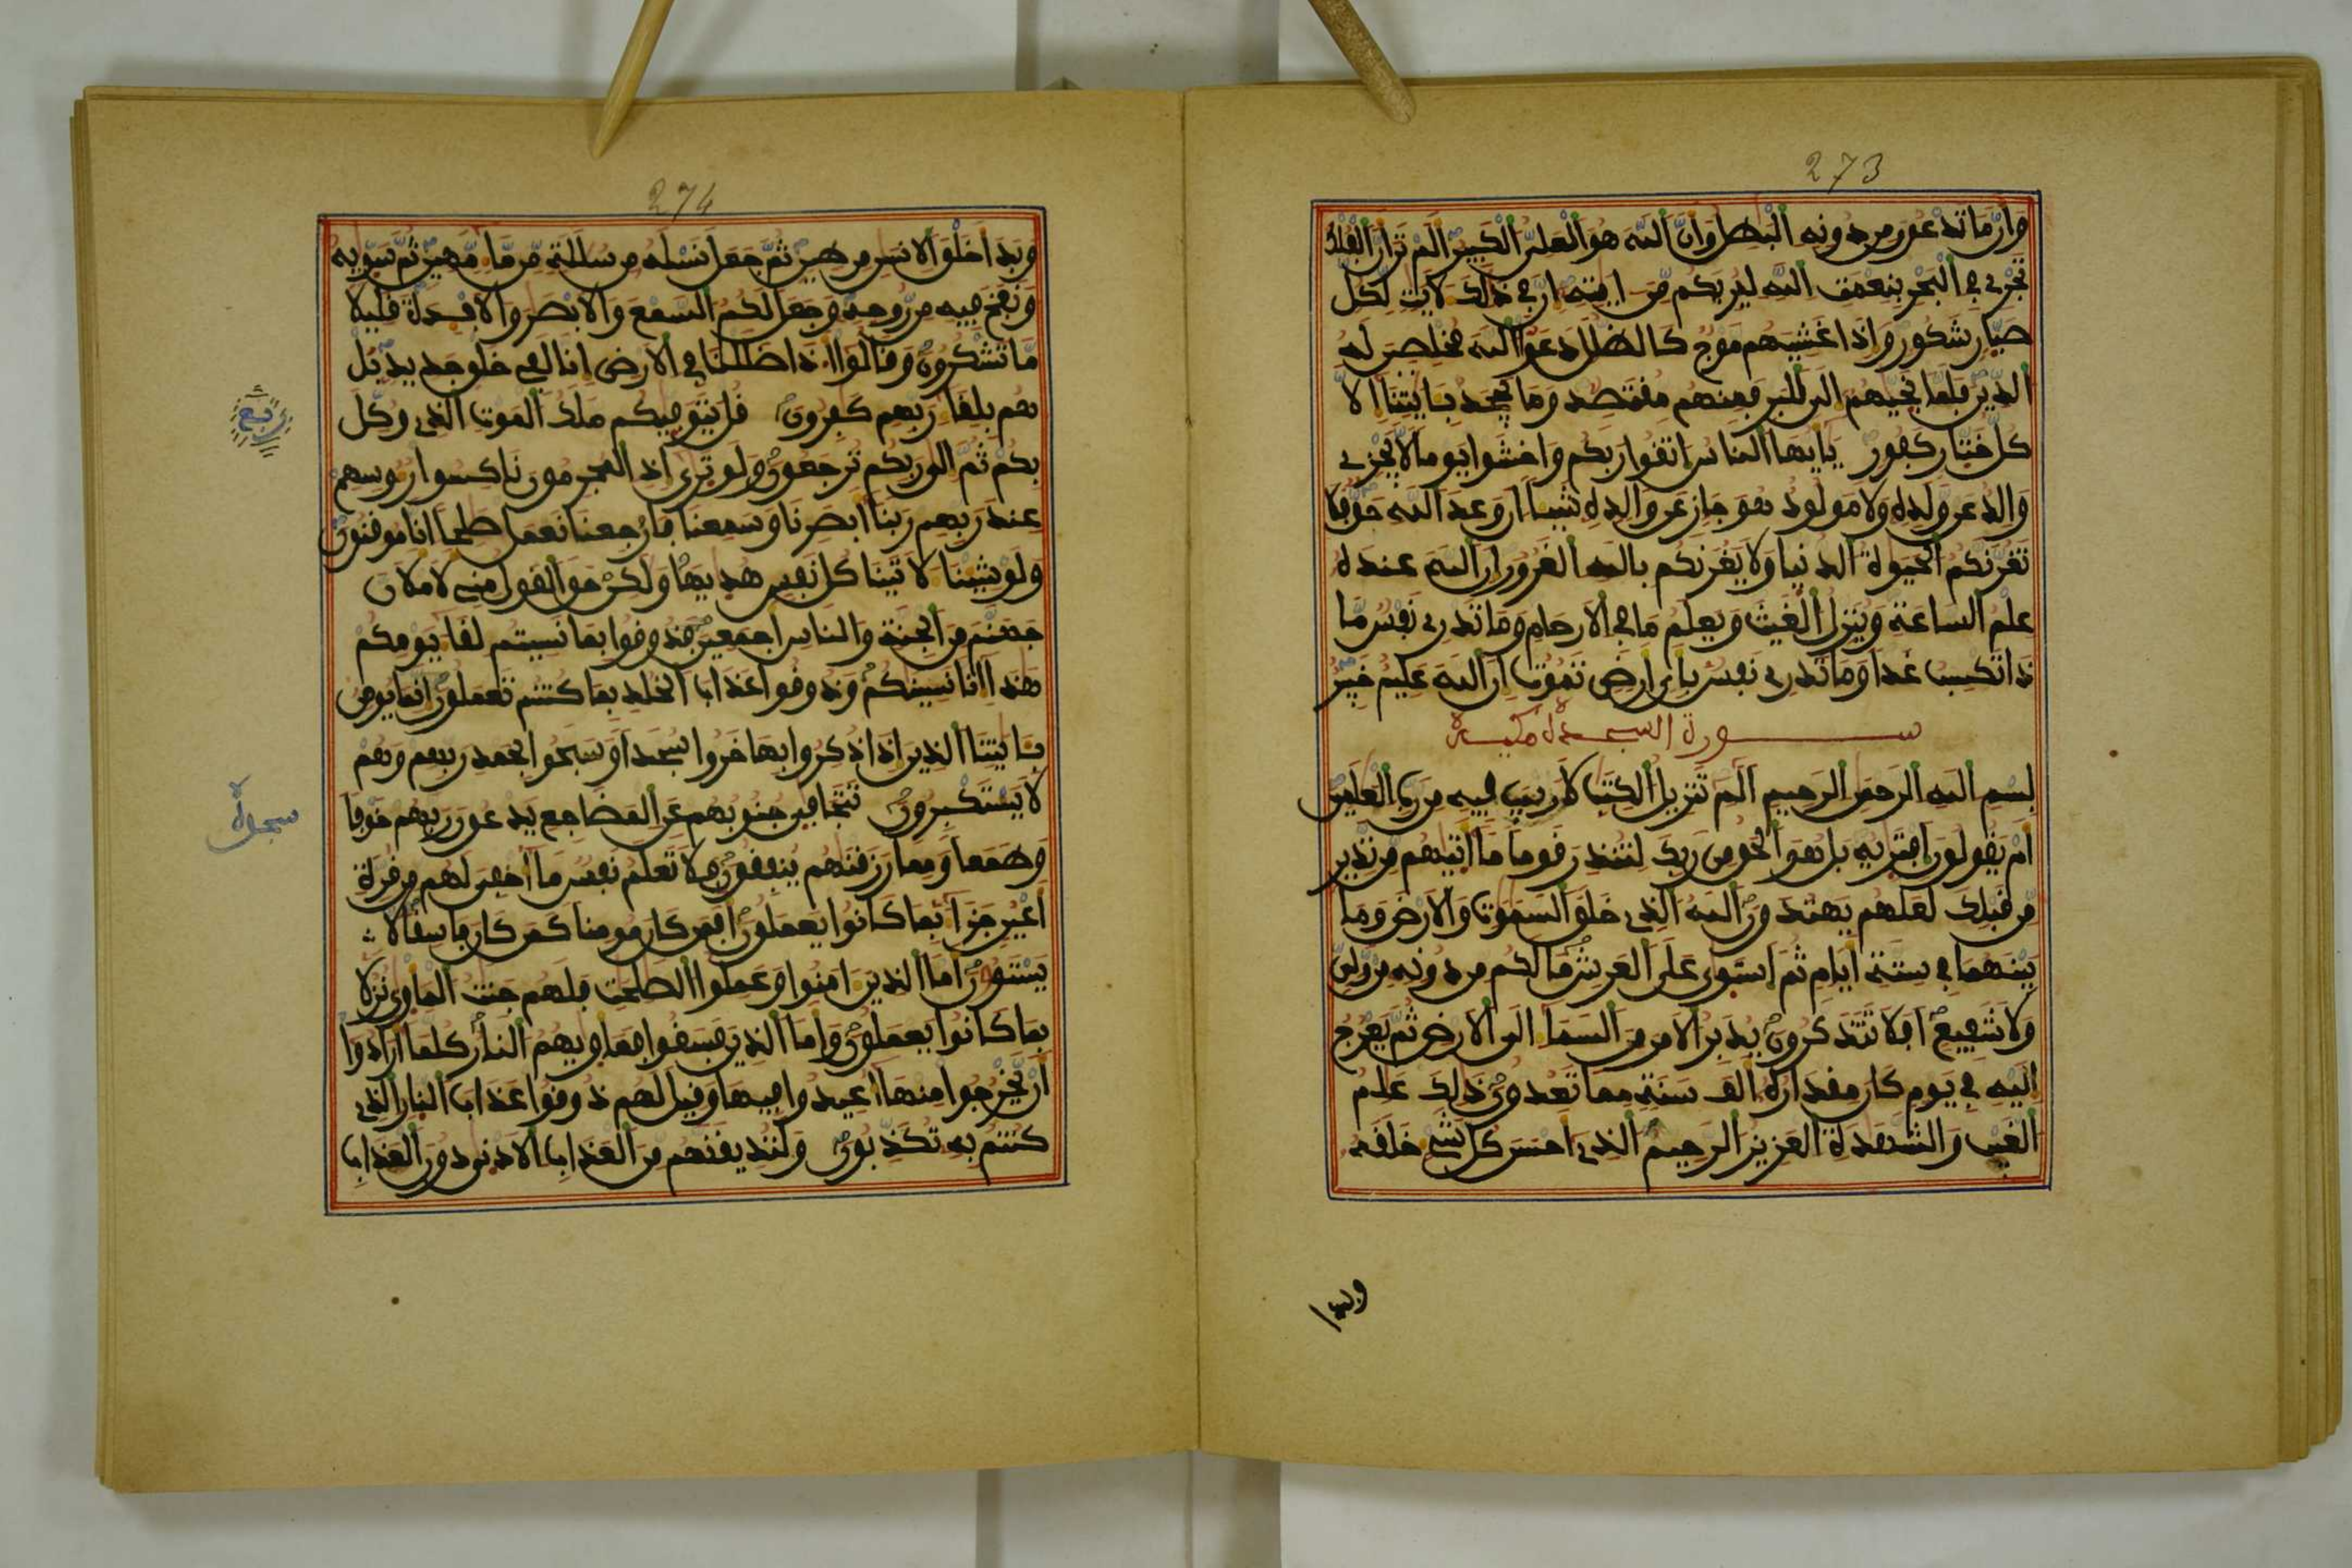 273
وان ما تدعون من دونه البطل وان الله هو العلي الكبير الم تر ان الفلك
تجري في البحر بنعمت الله ليريكم من ايته ان في ذلك لايت لكل
صبار شكور واذا غشيهم موج كالظلل دعوا الله مخلصين له
الدين فلما نجيهم الى البر فمنهم مقتصد وما يجحد بايتنا الا
كل ختار كفور يايها الناس اتقوا ربكم واخشوا يوما لا يجزي
والد عن ولده ولا مولود هو جاز عن والده شيا ان وعد الله حق فلا
تغرنكم الحيوة الدنيا ولا يغرنكم بالله الغرور ان الله عنده
علم الساعة وينزل الغيث ويعلم ما في الارحام وما تدري نفس ما
ذا تكسب غدا وما تدري نفس باي ارض تموت ان الله عليم خبير
سورة السجدة مكية
بسم الله الرحمن الرحيم الم تنزيل الكتب لا ريب فيه من رب العلمين
ام يقولون افتريه بل هو الحق من ربك لتنذر قوما ما اتيهم من نذير
من قبلك لعلهم يهتدون الله الذي خلق السموت والارض وما
بينهما في ستة ايام ثم استوى على العرش ما لكم من دونه من ولي
ولا شفيع افلا تتذكرون يدبر الامر من السما الى الارض ثم يعرج
اليه في يوم كان مقداره الف سنة مما تعدون ذلك علم
الغيب والشهدة العزيز الرحيم الذي احسن كل شي خلقه
وبدا
274
وبدا خلق الانسن من طين ثم جعل نسله من سللة من ما مهين ثم سويه
ونفخ فيه من روحه وجعل لكم السمع والابصر والافدة قليلا
ما تشكرون وقالوا اذا ضللنا في الارض انا لفي خلق جديد بل
هم بلقا ربهم كفرون قل يتوفيكم ملك الموت الذي وكل
ربع
بكم ثم الى ربكم ترجعون ولو ترى اذ المجرمون ناكسوا روسهم
عند ربهم ربنا ابصرنا وسمعنا فارجعنا نعمل صلحا انا موقنون
ولو شينا لاتينا كل نفس هديها ولكن حق القول مني لاملان
جهنم من الجنة والناس اجمعين فذوقوا بما نسيتم لقا يومكم
هذا انا نسينكم وذوقوا عذاب الخلد بما كنتم تعملون انما يومن
بايتنا الذين اذا ذكروا بها خروا سجدا وسبحوا بحمد ربهم وهم
لا يستكبرون تتجافى جنوبهم عن المضاجع يدعون ربهم خوفا
سجدة
وطمعا ومما رزقنهم ينفقون فلا تعلم نفس ما اخفي لهم من قرة
اعين جزا بما كانوا يعملون افمن كان مومنا كمن كان فاسقا لا
يستون اما الذين امنوا وعملوا الصلحت فلهم جنت الماوى نزلا
بما كانوا يعملون واما الذين فسقوا فماويهم النار كلما ارادوا
ان يخرجوا منها اعيدوا فيها وقيل لهم ذوقوا عذاب النار الذي
كنتم به تكذبون ولنذيقنهم من العذاب الادنى دون العذاب